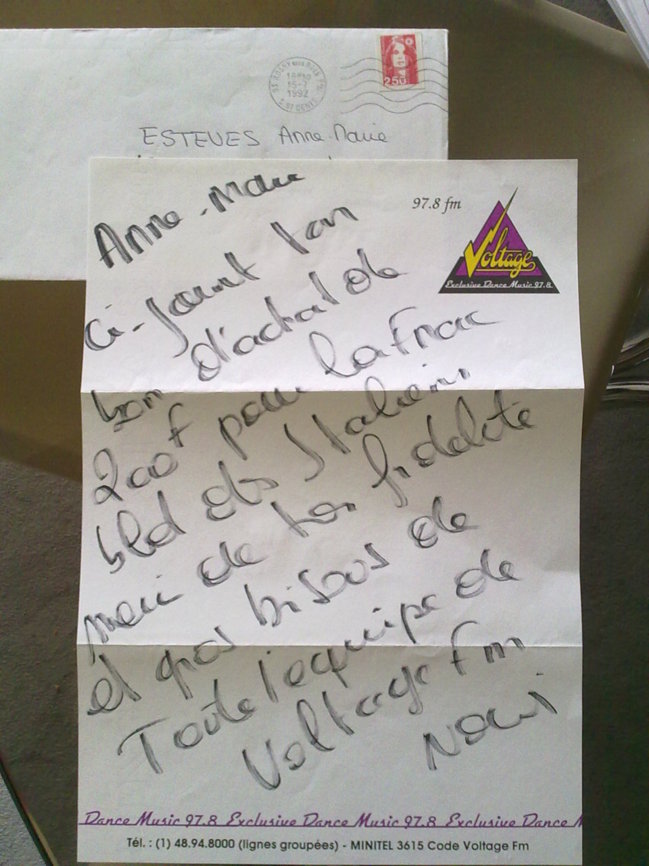 18H00
15-7
1992
2,50
ESTEVES Anne-Marie
97.8 fm
Voltage
Exclusive Dance Music 97.8
Anne-Marie
ci-joint ton
bon d'achat de
200F pour la Fnac
bld des Italiens
merci de ton fidelite
et gros bisous de
Toute l'equipe de
Voltage Fm
Dance Music 97.8 Exclusive Dance Music 97.8 Exclusive Dance M
Tél. : (1) 48.94.8000 (lignes groupées) - MINITEL 3615 Code Voltage Fm